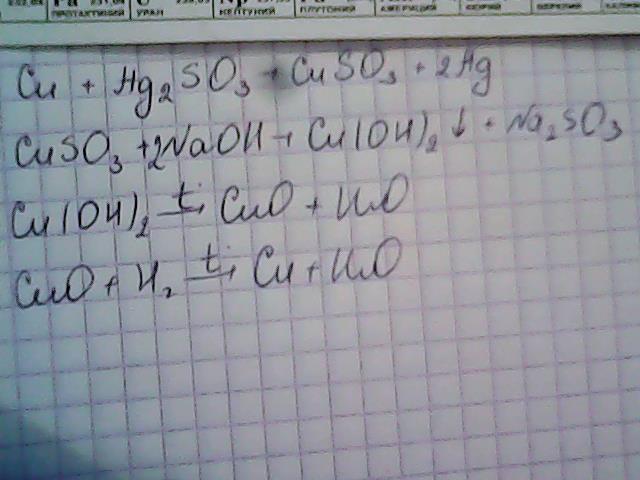 ПРОТАКТИНИЙ УРАН НЕПТУНИЙ ПЛУТОНИЙ АМЕРИЦИЙ КЮРИЙ БЕРКЛИЙ
Cu + Hg₂SO₃ → CuSO₃ + 2Hg
CuSO₃ + 2NaOH → Cu(OH)₂↓ + Na₂SO₃
Cu(OH)₂ t→ CuO + H₂O
CuO + H₂ t→ Cu + H₂O